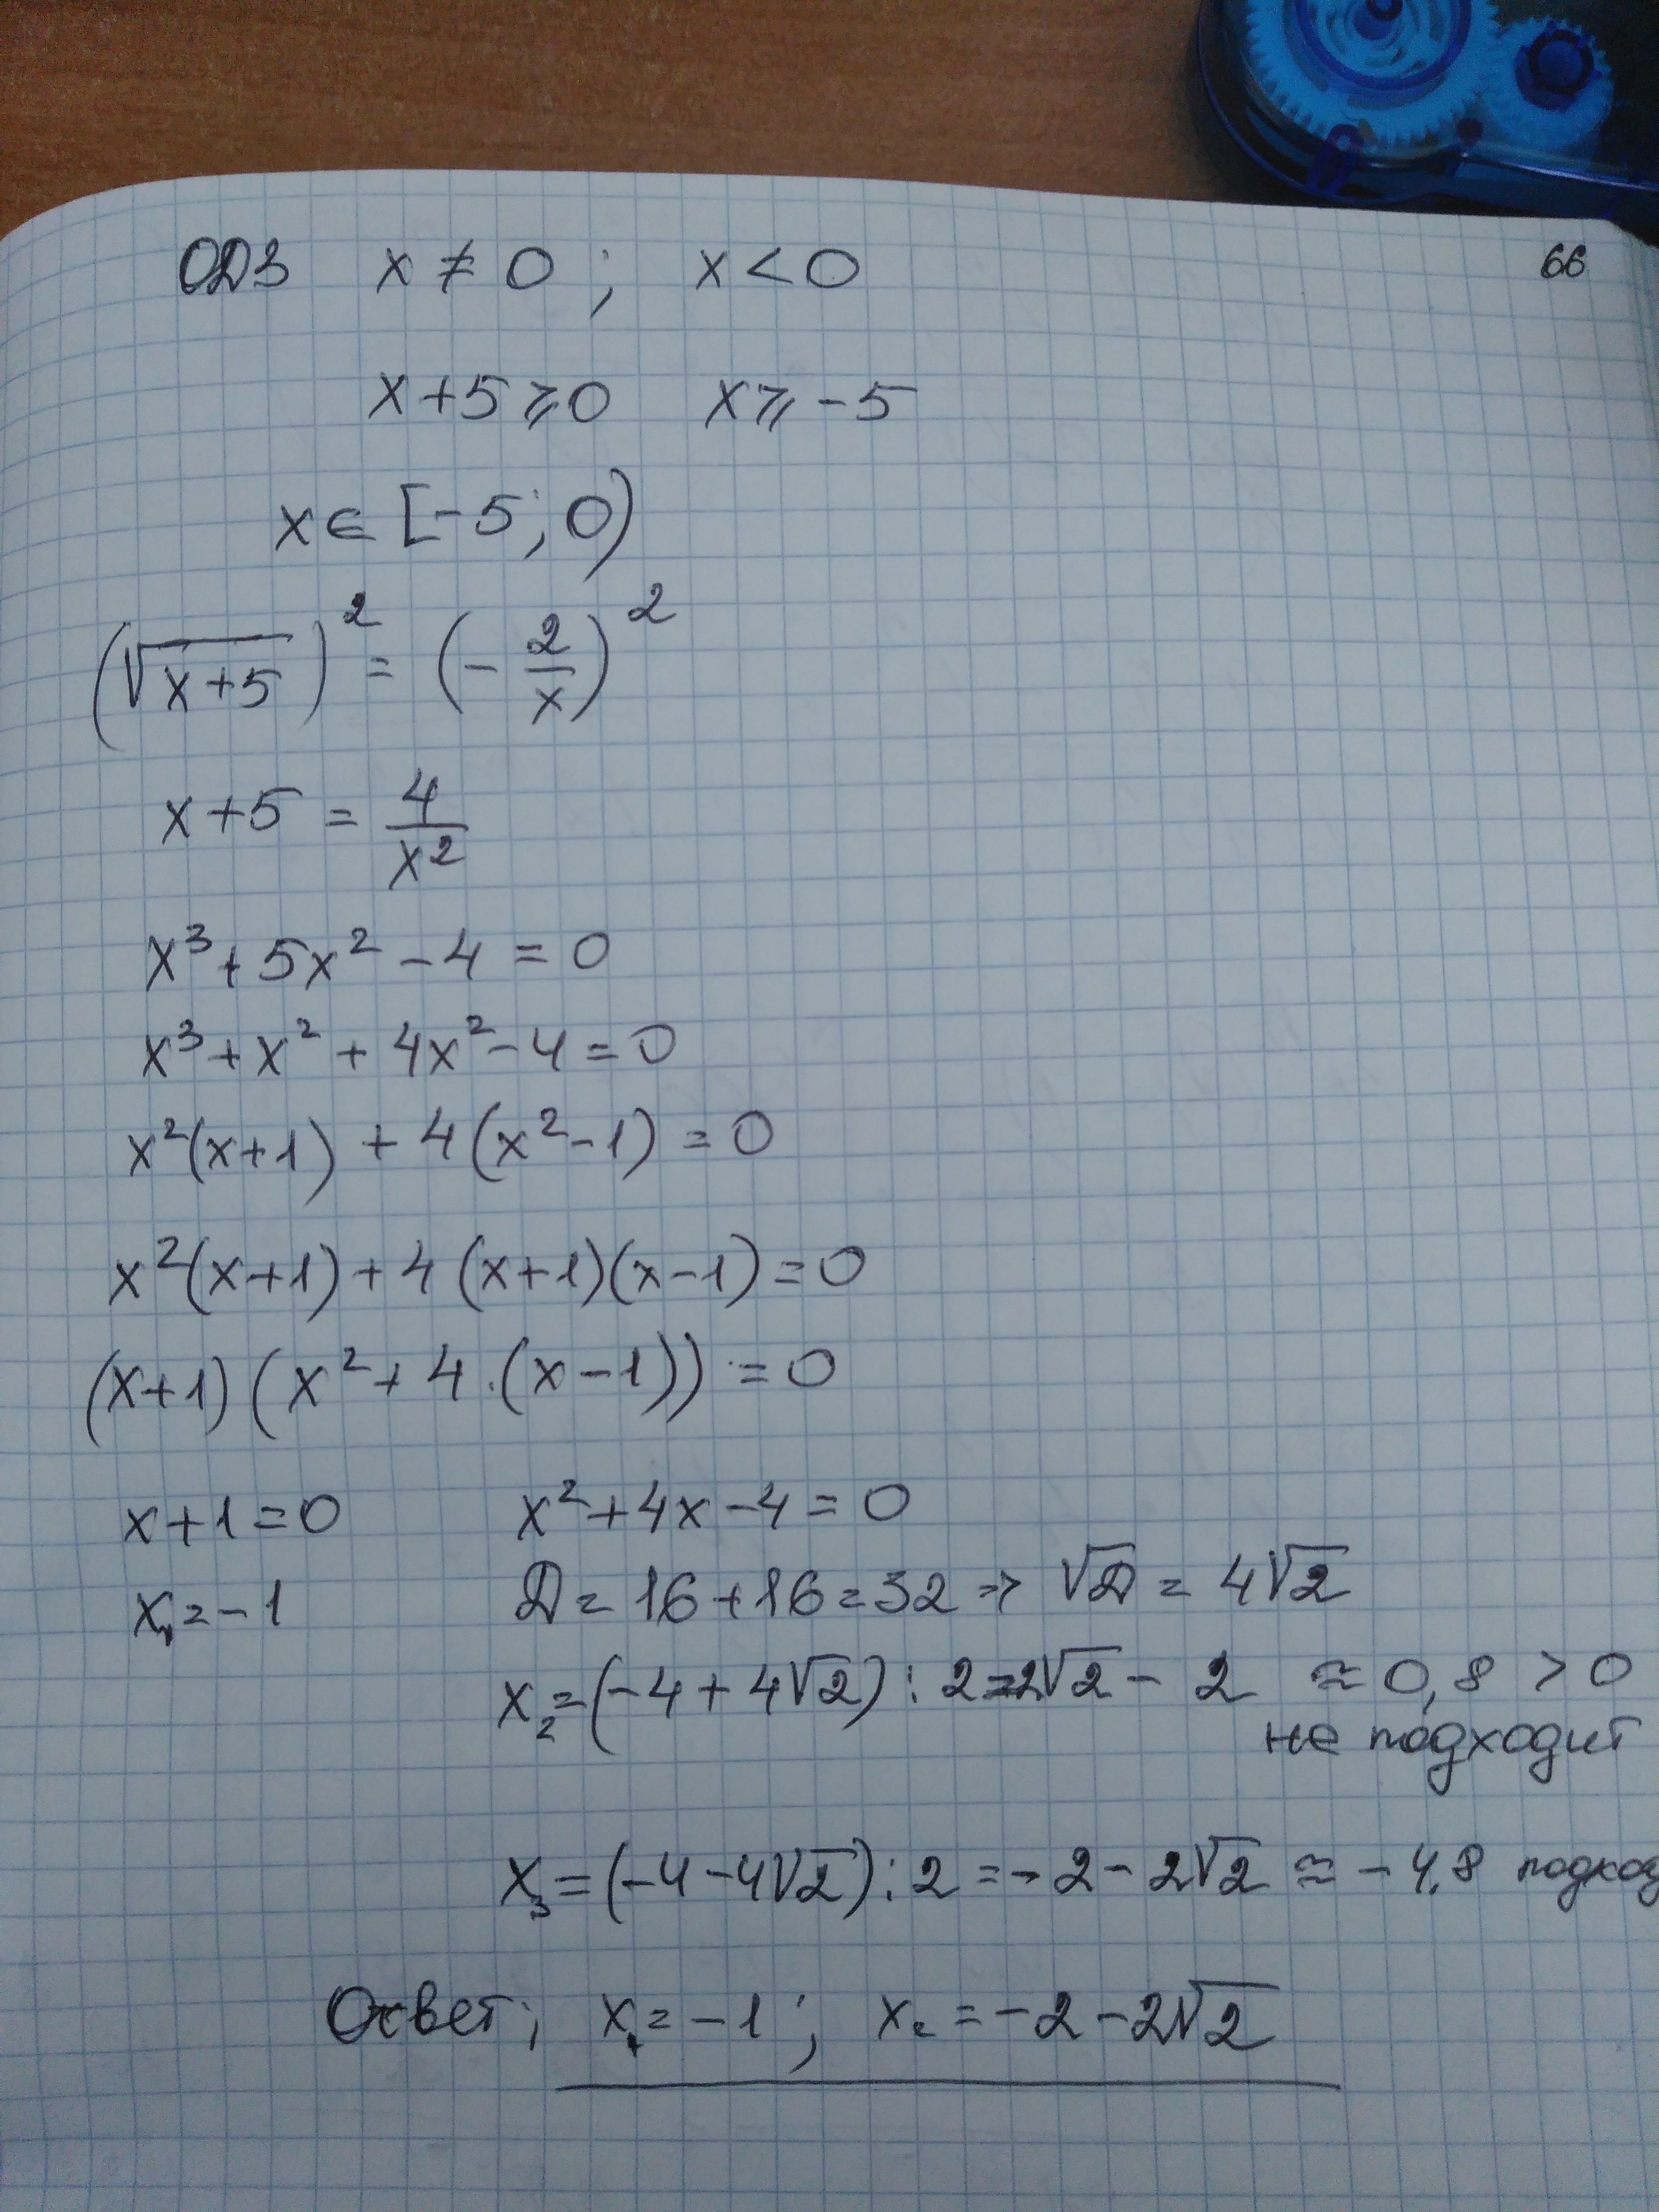 ОДЗ x ≠ 0 ; x < 0
66
x + 5 ⩾ 0 x ⩾ -5
x ∈ [-5; 0)
(√(x+5))² = (-2/x)²
x + 5 = 4/x²
x³ + 5x² - 4 = 0
x³ + x² + 4x² - 4 = 0
x²(x+1) + 4(x²-1) = 0
x²(x+1) + 4(x+1)(x-1) = 0
(x+1)(x² + 4·(x-1)) = 0
x+1=0 x² + 4x - 4 = 0
x₁ = -1 D = 16 + 16 = 32 => √D = 4√2
x₂ = (-4 + 4√2) : 2 = 2√2 - 2 ≈ 0,8 > 0
не подходит
x₃ = (-4 - 4√2) : 2 = -2 - 2√2 ≈ -4,8 подход
Ответ; x₁ = -1 ; x₂ = -2 - 2√2